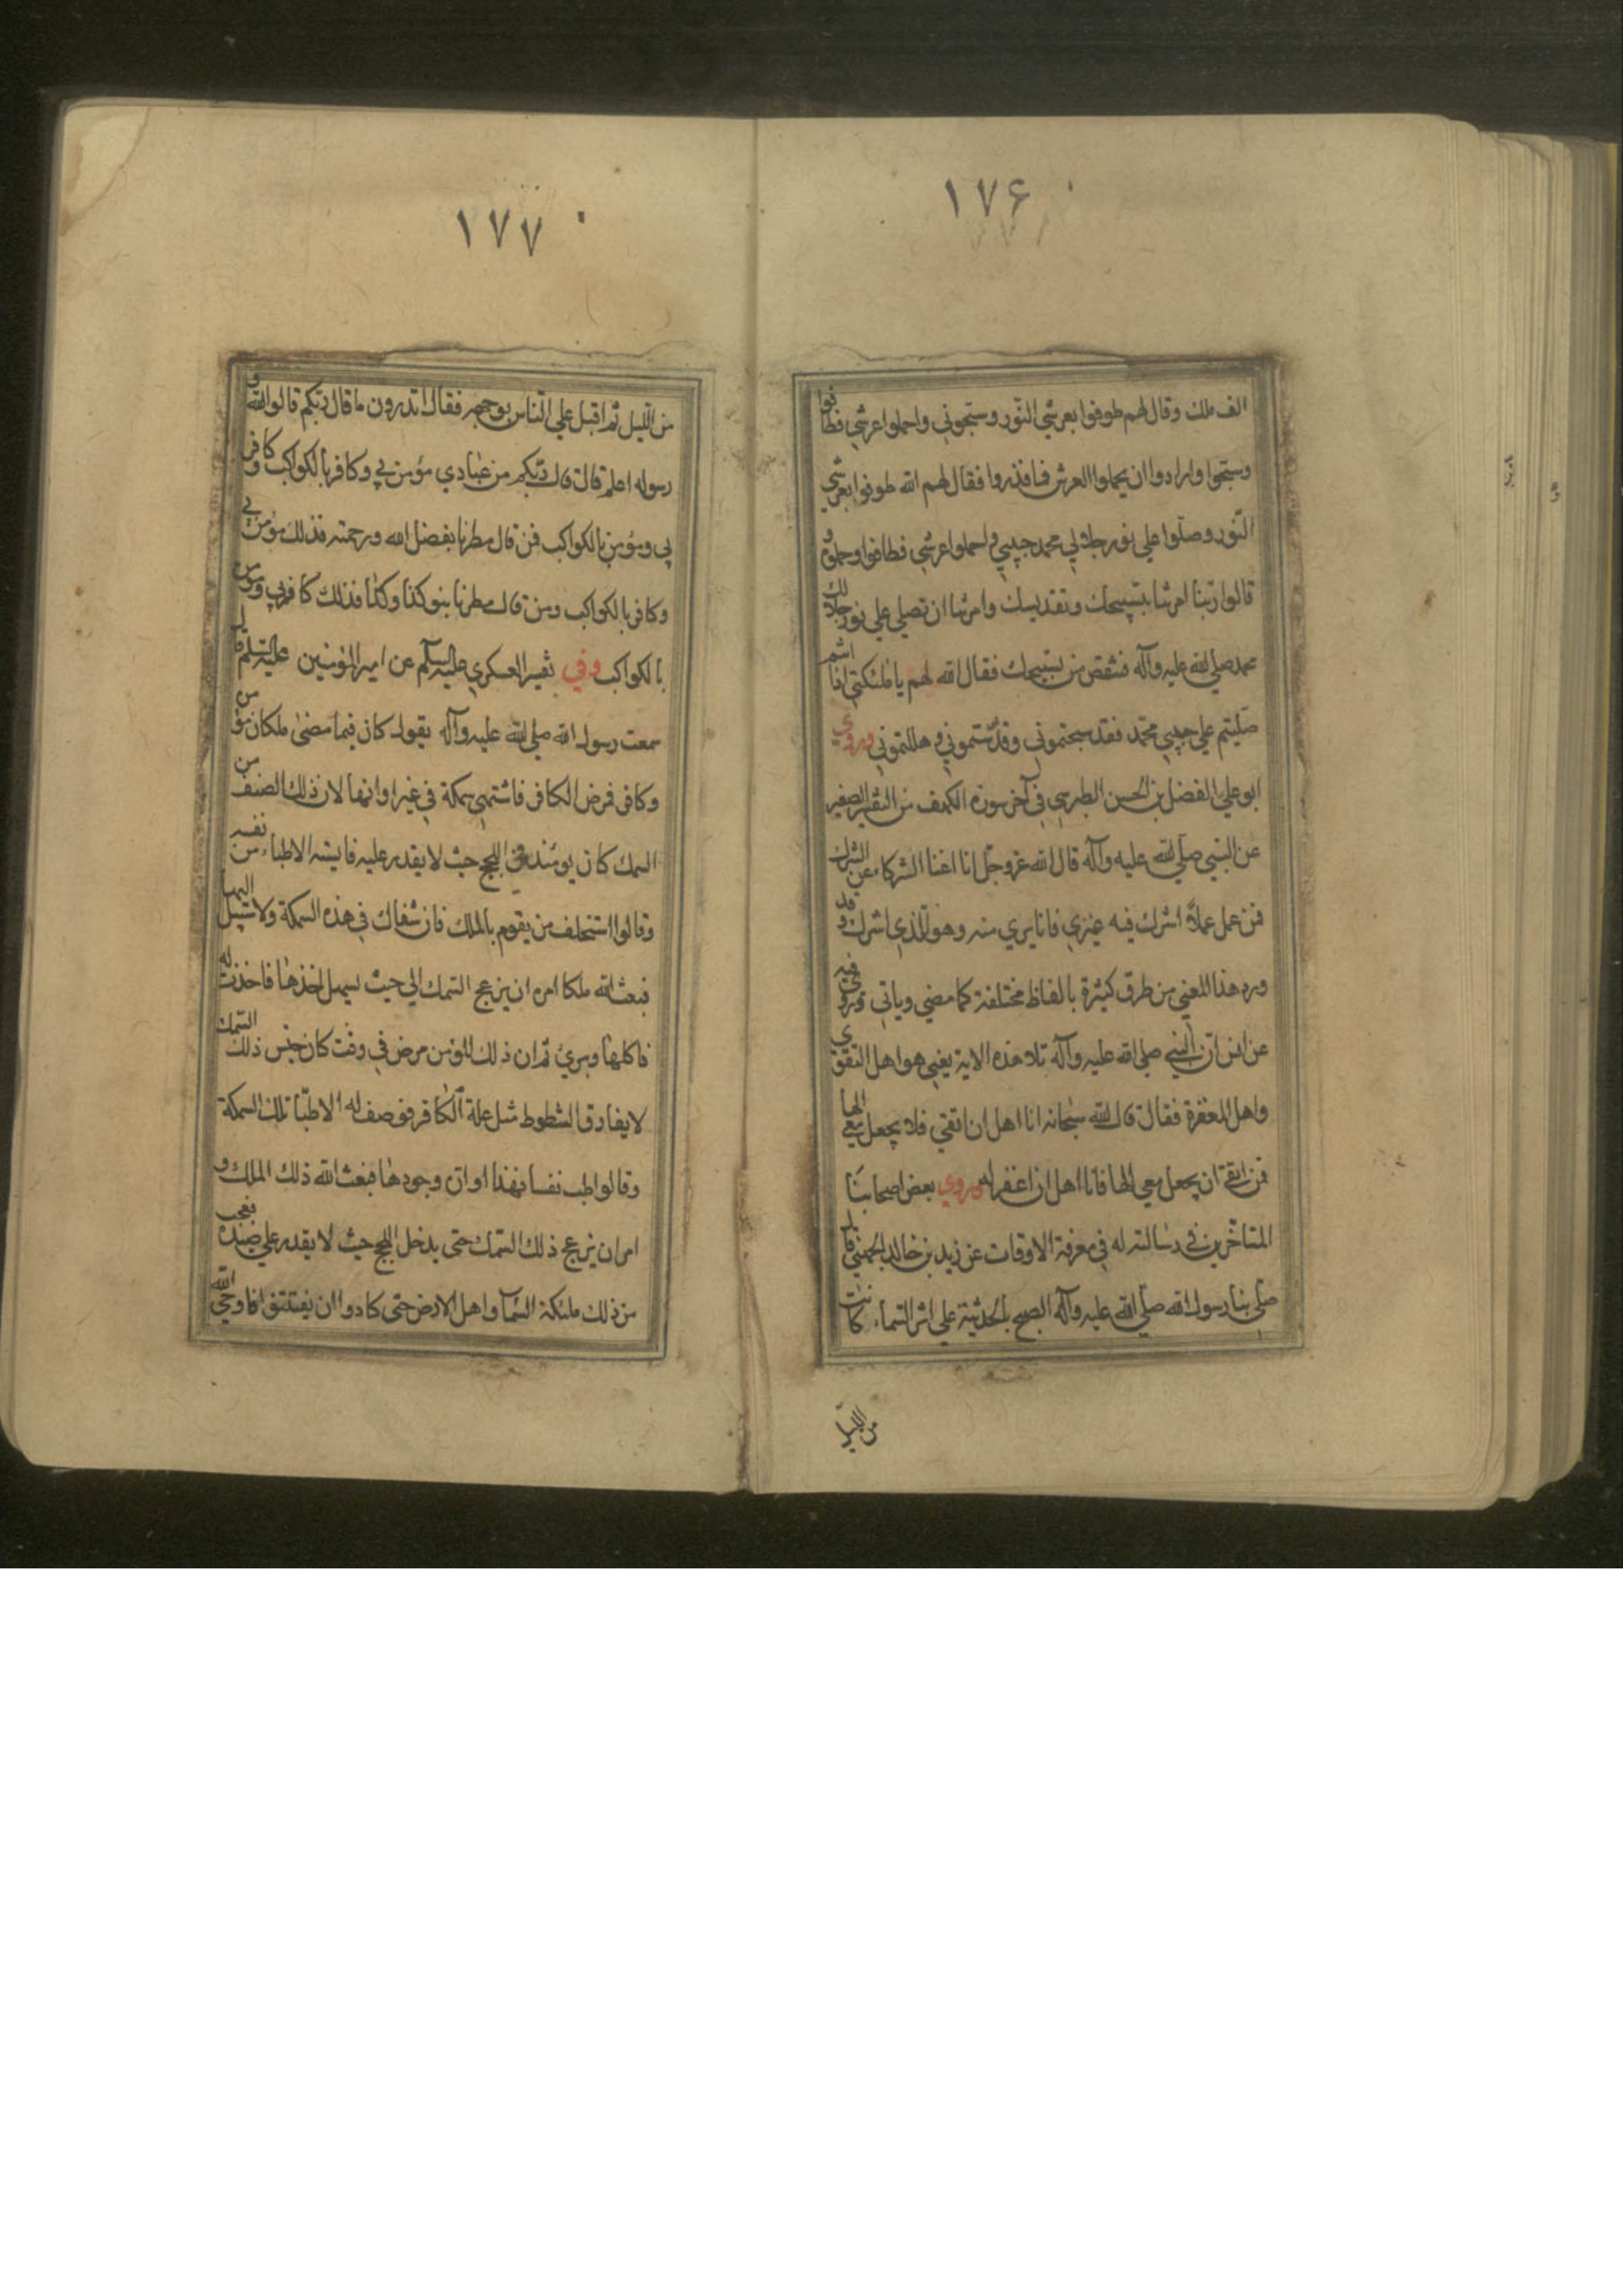 ۱۷۶
الف ملك وقال لهم طوفوا بعرشي النّور وسبّحوني واحملوا عرشي فطافوا
وسبّحوا وارادوا ان يحملوا العرش فما قدروا فقال لهم الله طوفوا بعرشي
النّور وصلّوا علي نور جلالي محمد حبيبي واحملوا عرشي فطافوا وحملوه و
قالوا ربّنا امرتنا بتسبيحك وتقديسك وامرتنا ان نصلي علي نور جلالك
محمد صلي الله عليه وآله فننقص من تسبيحك فقال الله لهم يا ملئكتي اذا انتم
صليتم علي حبيبي محمّد فقد سبحتموني وقدّستموني وهللتموني وروي
ابو علي الفضل بن الحسن الطبرسي في آخر سورة الكهف من التفسير الصغير
عن النبي صلّي الله عليه وآله قال الله عزوجلّ انا اغنا الشركاء عن الشرك
فمن عمل عملاً اشرك فيه غيري فانا بري منه وهو للّذي اشرك وقد
ورد هذا المعني من طرق كثيرة بالفاظ مختلفة كما مضي وياتي وروي فيه
عن انس انّ النبي صلي الله عليه وآله تلا هذه الاية يعني هو اهل التقوي
واهل المغفرة فقال قال الله سبحانه انا اهل ان اتقي فلا يجعل معي الها
فمن اتقي ان يجعل معي الها فانا اهل ان اغفر له وروي بعض اصحابنا
المتاخّرين في رسالته له في معرفة الاوقات عن زيد بن خالد الجهني قال
صلّي بنا رسول الله صلّي الله عليه وآله الصبح بالحديبية علي اثر السّماء كانت
من الليل
۱۷۷
من اللّيل ثم اقبل علي النّاس بوجهه فقال اتدرون ما قال ربّكم قالوا الله و
رسوله اعلم قال قال ربّكم من عبادي مؤمن بي وكافر بالكواكب وكافر
بي ومؤمن بالكواكب فمن قال مطرنا بفضل الله ورحمته فذلك مؤمن بي
وكافر بالكواكب ومن قال مطرنا بنو كذا وكذا فذلك كافر بي ومؤمن
بالكواكب وفي تفسير العسكري عليه السلم عن امير المؤمنين عليه السلم قال
سمعت رسول الله صلي الله عليه وآله يقول كان فيما مضي ملكان مؤمن
وكافر فمرض الكافر فاشتهي سمكة في غير اوانها لان ذلك الصنف من
السمك كان يومئذ في اللجج حيث لا يقدر عليه فايسته الاطباء من نفسه
وقالوا استخلف من يقوم بالملك فان شفاك في هذه السمكة ولا سبيل اليها
فبعث الله ملكا امره ان يزعج السّمك الي حيث يسهل اخذها فاخذت له
فاكلها وبري ثمّ ان ذلك المؤمن مرض في وقت كان جنس ذلك السّمك
لا يفارق الشطوط مثل علة الكافر فوصف له الاطبّا تلك السمكة
وقالوا طب نفسا فهذا اوان وجودها فبعث الله ذلك الملك و
امر ان يزعج ذلك السّمك حتي يدخل اللجج حيث لا يقدر علي صيده فعجب
من ذلك ملئكة السّما واهل الارض حتي كادوا ان يفتتنوا فاوحي الله